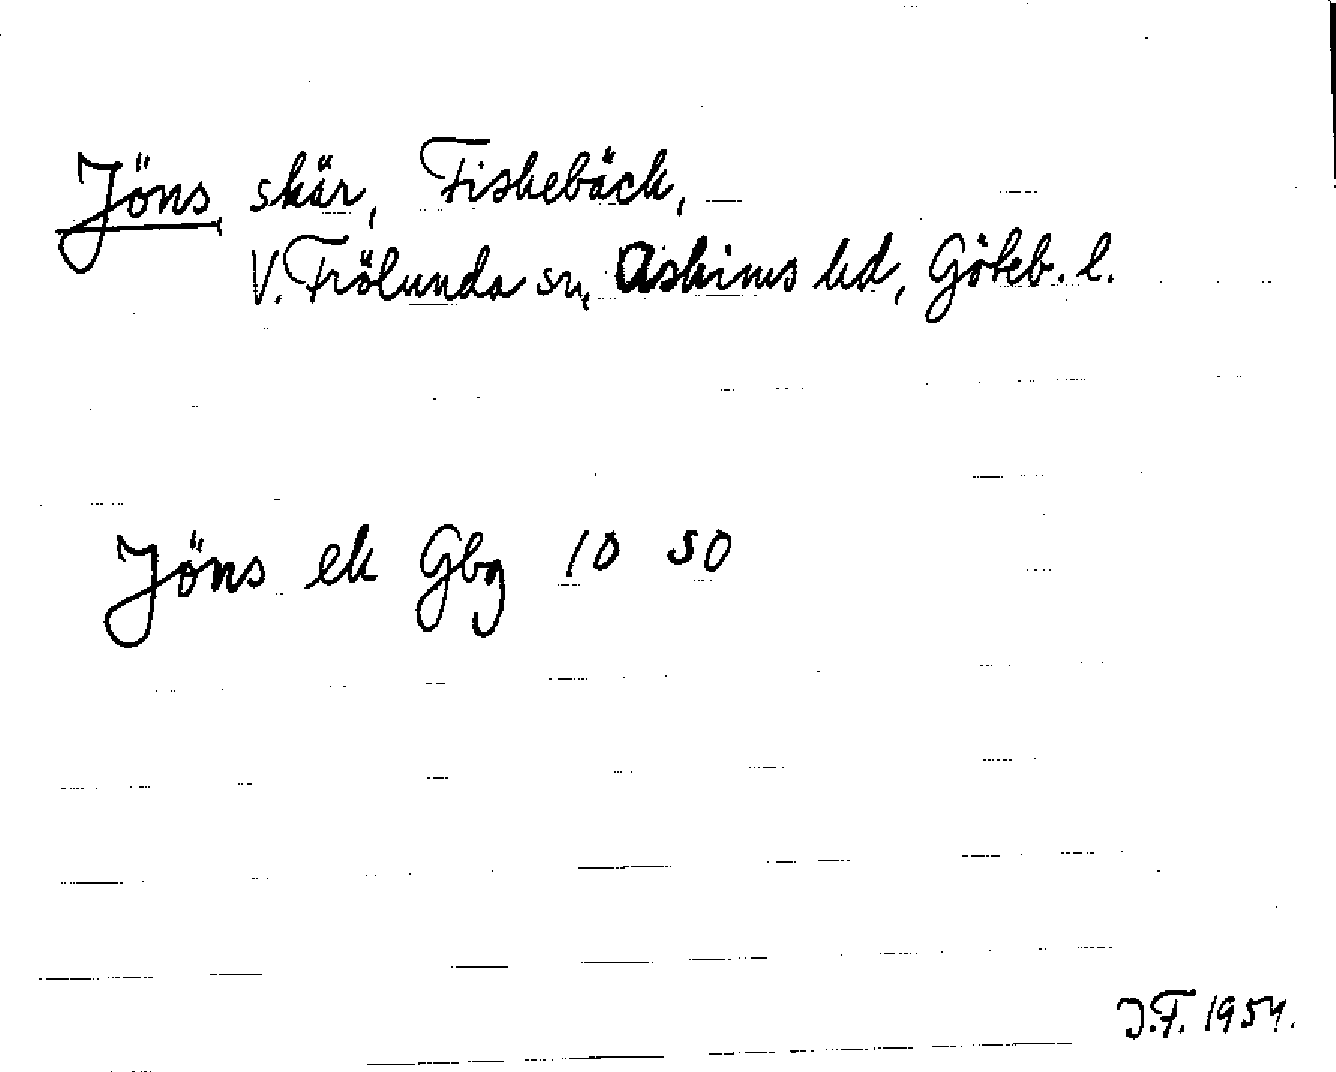 Jöns, skär, Fiskebäck,
V. Frölunda sn, Askims hd, Göteb. l.
Jöns ek Gbg 10 50
J.F. 1954.